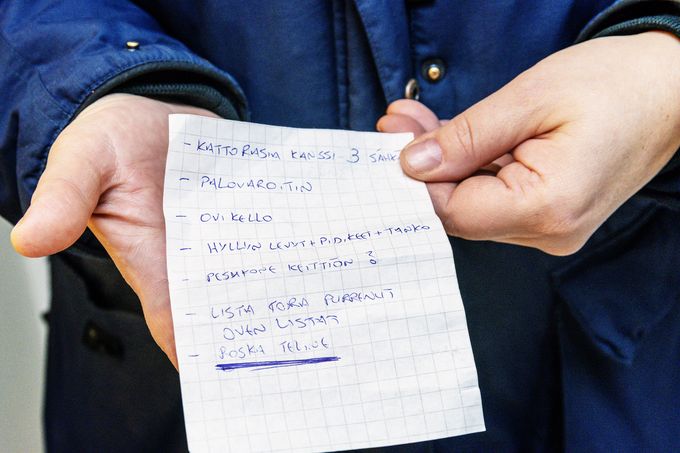 - KATTORASIA KANSSI 3 SÄHK
- PALOVAROITIN
- OVIKELLO
- HYLLIIN LEVYT + PIDIKEET + TANKO
- PESUKONE KEITTIÖN ?
- LISTA KOIRA PURRENUT
OVEN LISTAT
- ROSKA TELINE